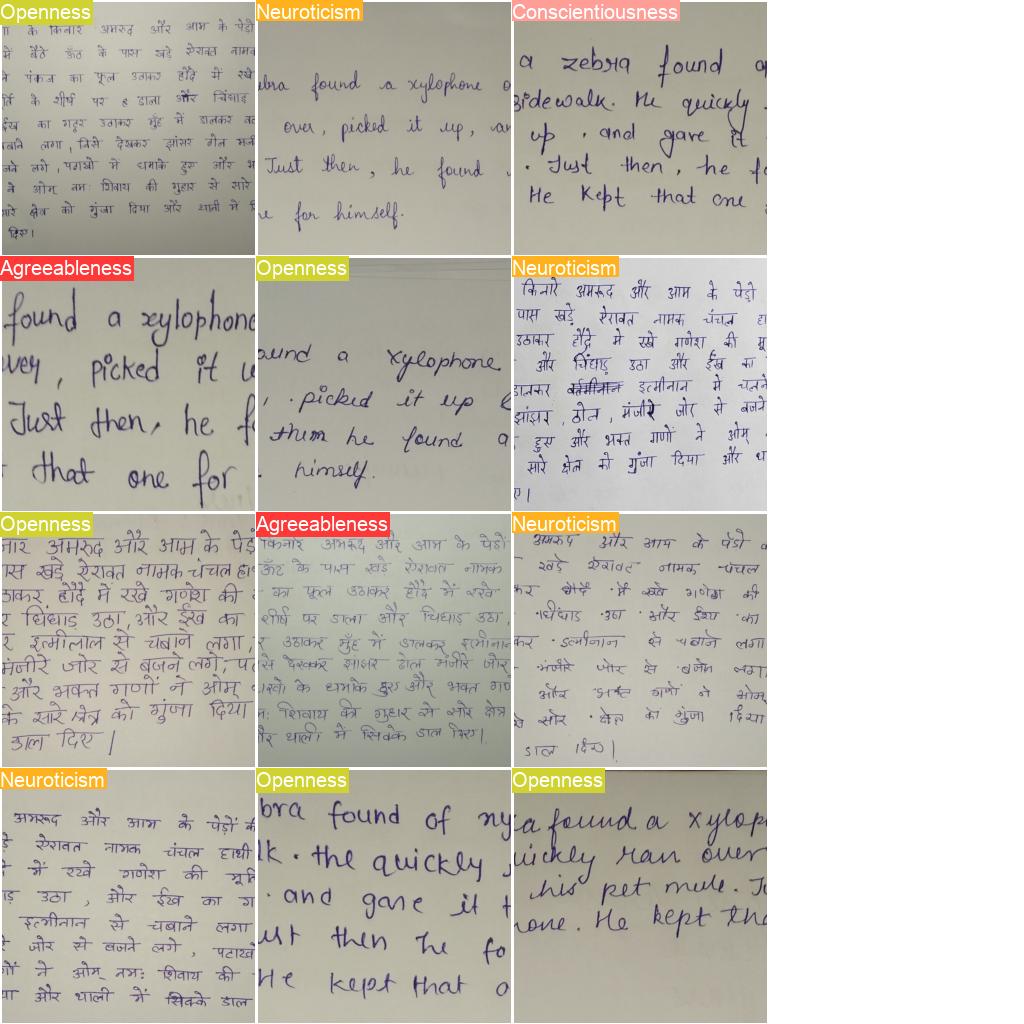 Openness
के किनार अमरुद और आम के पेड़ो
में बैठे ऊँट के पास खड़े ऐरावत नामक
पंकज का फूल उठाकर हौदे में रखे
के शीर्ष पर ह डाला और चिंघाड़
ईख का गट्ठर उठाकर मुँह में डालकर
चबाने लगा, जिसे देखकर झांसर ढोल
लगे, पटाखों में धमाके हुए और
ने ओम् नमः शिवाय की गुहार से सारे
सारे क्षेत्र को गुंजा दिया और थाली में
दिए।
Neuroticism
ebra found a xylophone o
over, picked it up, an
Just then, he found
e for himself.
Conscientiousness
a zebra found a
sidewalk. He quickly
up . and gave it
. Just then, he fo
He Kept that one
Agreeableness
found a xylophone
over, picked it u
Just then, he f
that one for
Openness
ound a xylephone
, . picked it up &
them he found a
. himself.
Neuroticism
किनारे अमरूद और आम के पेड़ो
पास खड़े ऐरावत नामक चंचल हा
उठाकर हौदे मे रखे गणेश की मू
और चिंघाड़ उठा और ईख का
डालकर इत्मीनान से चबाने
झांझर, ढोल, मंजीरे जोर से बजने
हुए और भक्त गणों ने ओम्
सारे क्षेत्र को गुंजा दिया और था
ए।
Openness
नार अमरुद और आम के पेड़ो
पास खड़े ऐरावत नामक चंचल हाथ
ठाकर हौदे में रखे गणेश की
र चिंघाड़ उठा, और ईख का
र इत्मीलाल से चबाने लगा,
मंजीरे जोर से बजने लगे, पट
और भक्त गणों ने ओम्
के सारे क्षेत्र को गुंजा दिया
डाल दिए।
Agreeableness
किनार अमरूद और आम के पेडों
ऊँट के पास खड़े ऐरावत नामक
का फूल उठाकर हौदे में रखे
शीर्ष पर डाला और चिघाड उठा,
र उठाकर मुँह में डालकर इत्मीनान
से देखकर झांझर ढोल मंजीरे जोर
टाखो के धमाके हुए और भक्त गण
मः शिवाय की गुहार से सारे क्षेत्र
और थाली में सिक्के डाल दिए।
Neuroticism
अमरुद और आम के पेडो क
खड़े ऐरावट नामक चंचल
कर हौदे में रखे गणेश की
चिंघाड उठा और ईख का
कर इत्मीनान से चबाने लगा
मंजीरे जोर से बजने लगा
और भक्ट गणों ने ओम्
से सारे क्षेत्र को गुंजा दिया
डाल दिए।
Neuroticism
अमरूद और आम के पेड़ों की
ड़े ऐरावत नामक चंचल हाथी
में रखे गणेश की मूर्ति
ड़ उठा, और ईख का ग
इत्मीनान से चबाने लगा
रे जोर से बजने लगे, पटाखे
णों ने ओम् नमः शिवाय की
या और थाली में सिक्के डाल
Openness
bra found of ny
lk . the quickly
. and gane it t
ust then he fo
He kept that o
Openness
a found a xylop
uickly ran over
his pet mule. Ju
hone. He kept tha